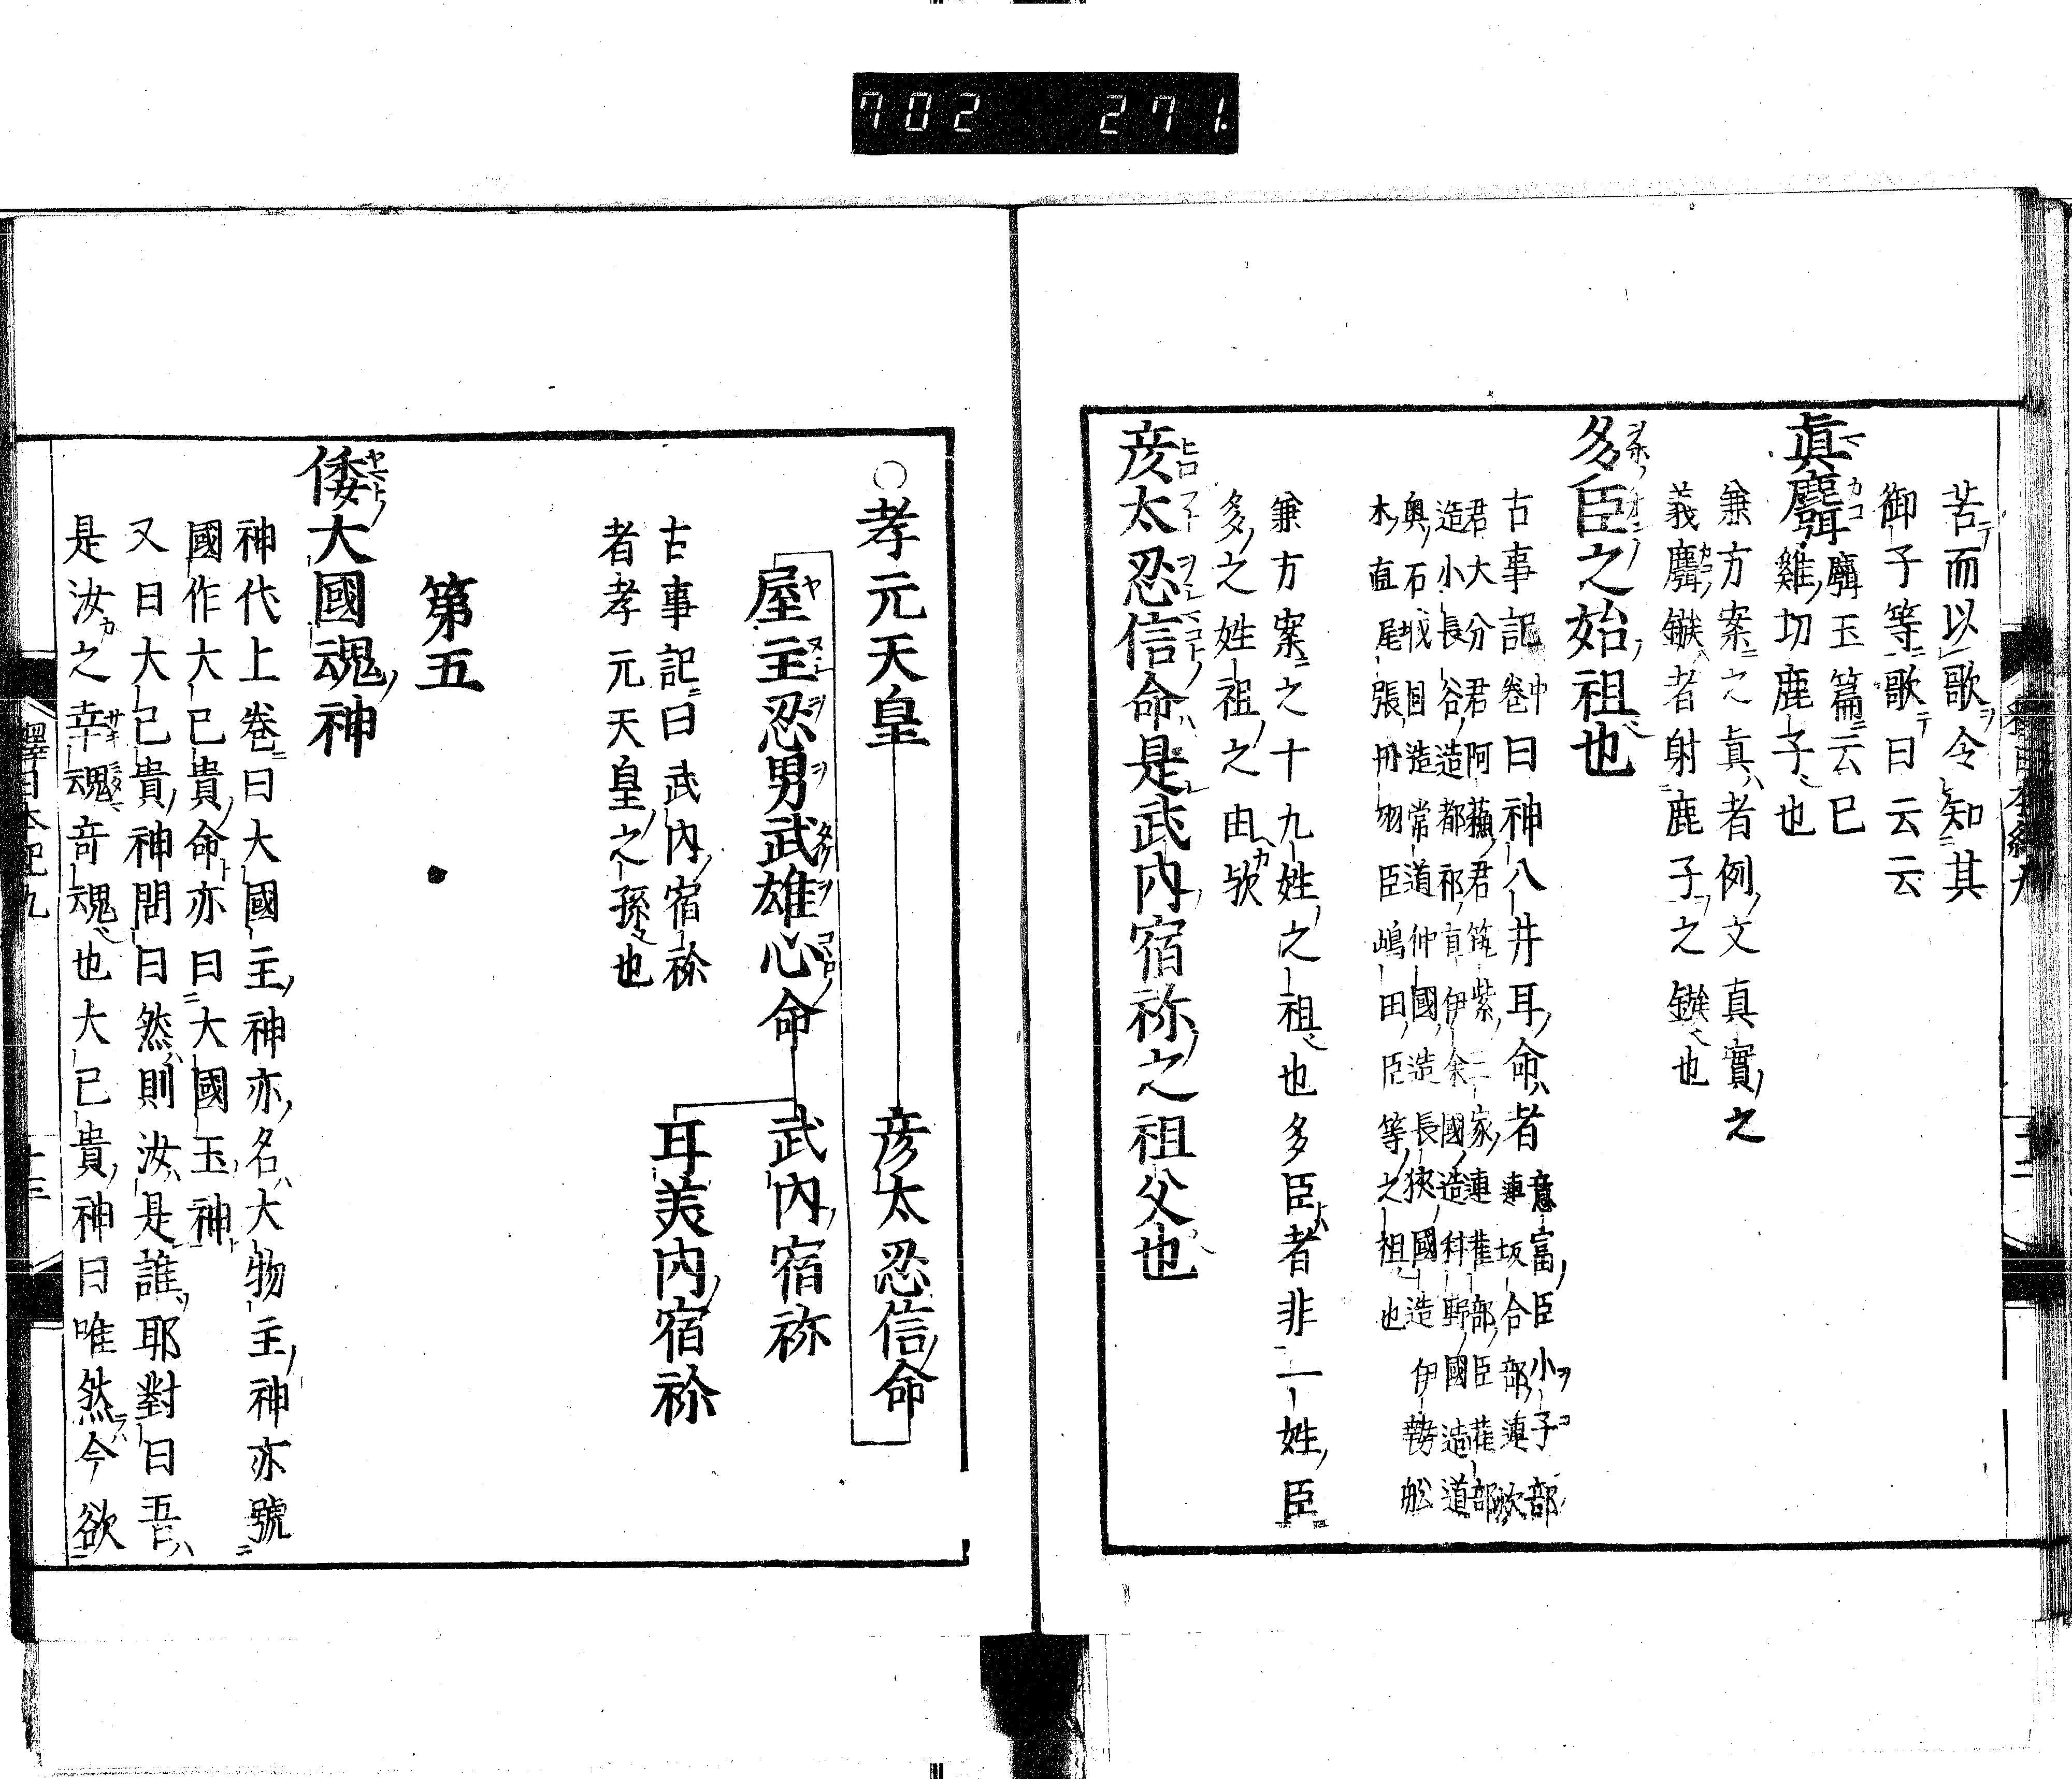 702 271.
苦而以歌令知其
御子等歌曰云云
眞麛䴥麛玉篇云巳
雞切鹿子也
兼方案之眞者例文真實之
義麛鏃者射鹿子之鏃也
多臣之始祖也
古事記中卷曰神八井耳命者意富臣小子部
連坂合部連欤
君大分君阿蘓君筑紫三家連雀部臣雀部
造小長谷造都祁直伊余國造科野國造道
奥石城國造常道仲國造長狹國造伊勢舩
木直尾張丹羽臣嶋田臣等之祖也
兼方案之十九姓之祖也多臣者非一姓臣
多之姓祖之由欤
彦太忍信命是武内宿祢之祖父也
○孝元天皇
彦太忍信命
屋主忍男武雄心命
武内宿祢
耳美内宿祢
古事記曰武内宿祢
者孝元天皇之孫也
第五
倭大國魂神
神代上卷曰大國主神亦名大物主神亦號
國作大己貴命亦曰大國玉神
又曰大己貴神問曰然則汝是誰耶對曰吾
是汝之幸魂奇魂也大己貴神曰唯然今欲
釋日本紀九
十三